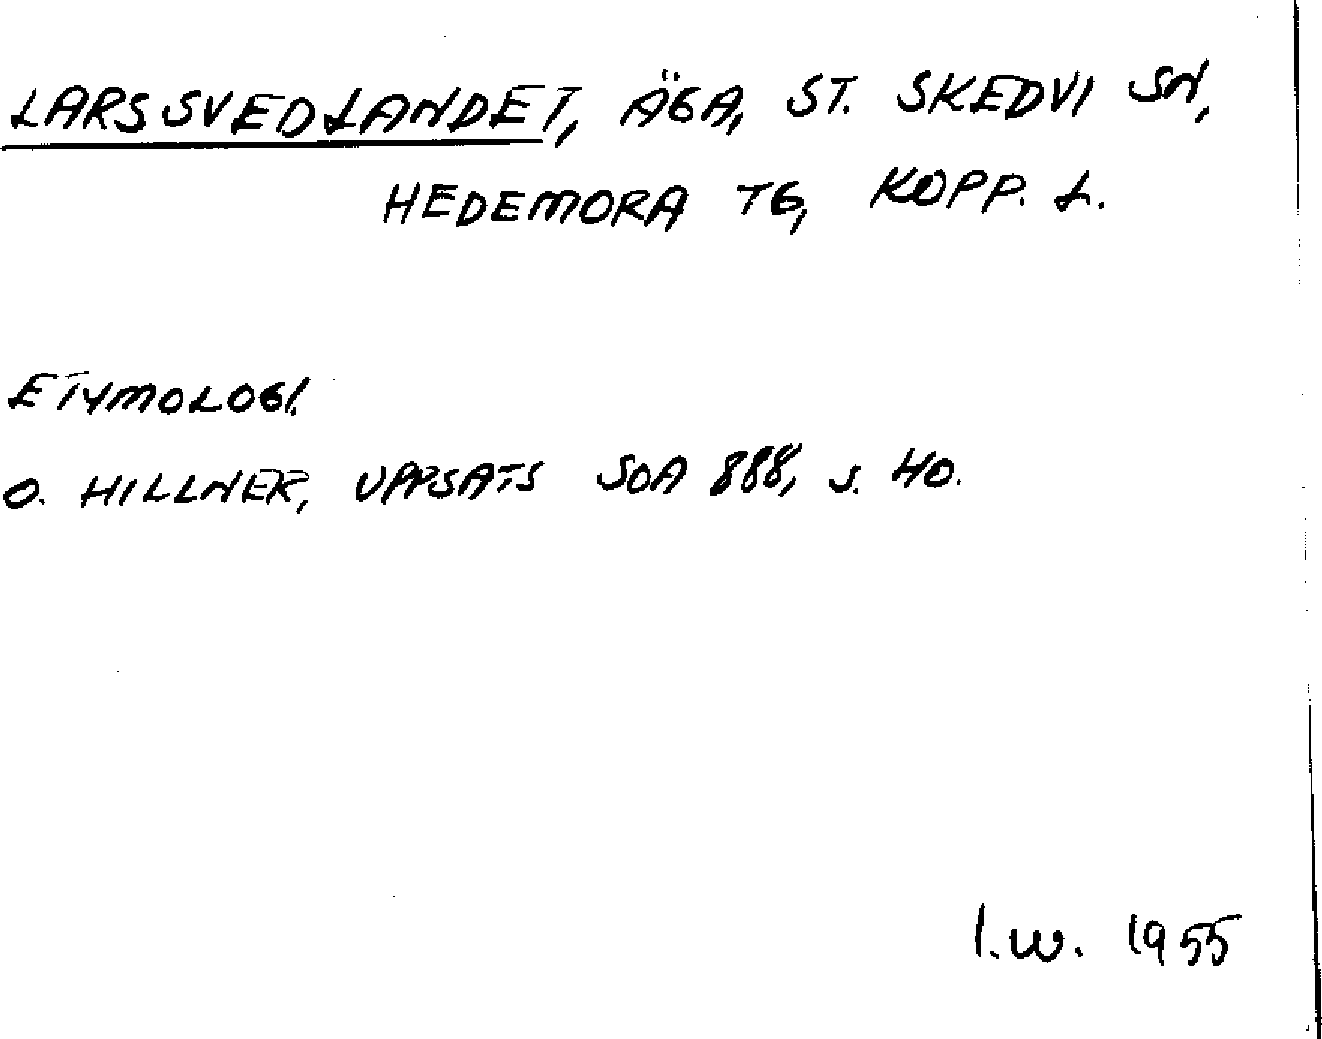 LARSSVEDLANDET, ÄGA, ST. SKEDVI SN,
HEDEMORA TG, KOPP. L.
ETYMOLOGI.
O. HILLNER, UPPSATS SOA 888, S. 40.
I.W. 1955